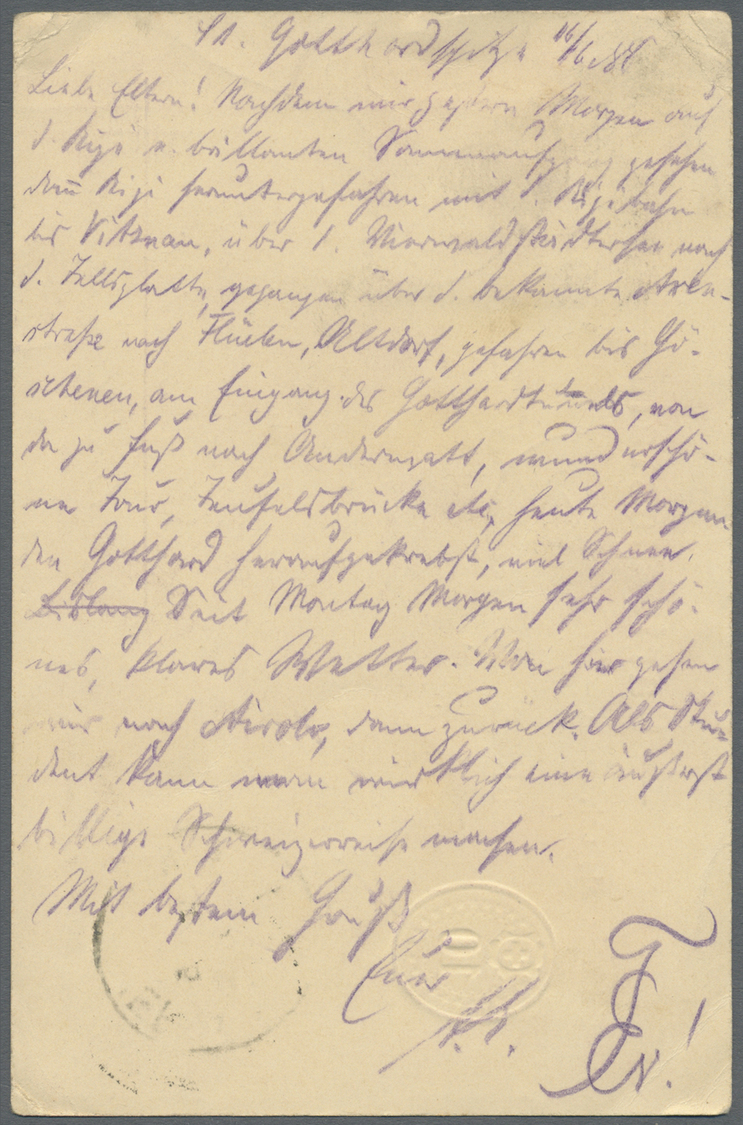 St. Gotthardspitze 16/6.86
Liebe Eltern! Nachdem wir gestern Morgen auf
d. Rigi e. brillanten Sonnenaufgang gesehen
dann Rigi heruntergefahren mit d. Rigibahn
bis Vitznau, über d. Vierwaldstädtersee nach
d. Tellsplatte, gegangen über d. bekannte Axen-
straße nach Flüelen, Altdorf, gefahren bis Gö-
schenen, am Eingang des Gotthardtunnels, von
da zu Fuß nach Andermatt, wunderschö-
ne Tour, Teufelsbrücke etc, heute Morgen
den Gotthard heraufgekrebst, viel Schnee.
Bislang Seit Montag Morgen sehr schö-
nes, klares Wetter. Von hier gehen
wir nach Airolo, dann zurück. Als Stu-
dent kann man wirklich eine äußerst
billige Schweizerreise machen.
Mit bestem Gruß
Euer